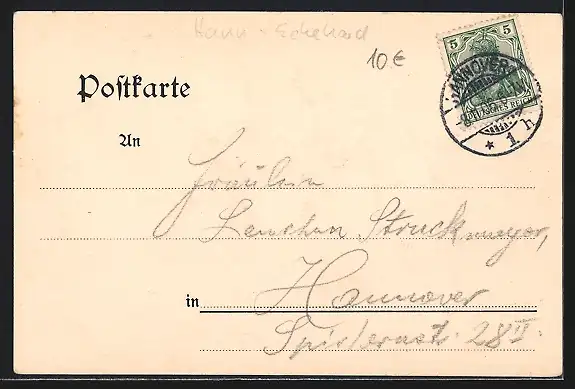 Hann - Eckehard
10 €
5 5
DEUTSCHES REICH
HANNOVER
* 1 h
Postkarte
An
Fräulein
Lenchen Struckmeyer,
in Hannover
28 II